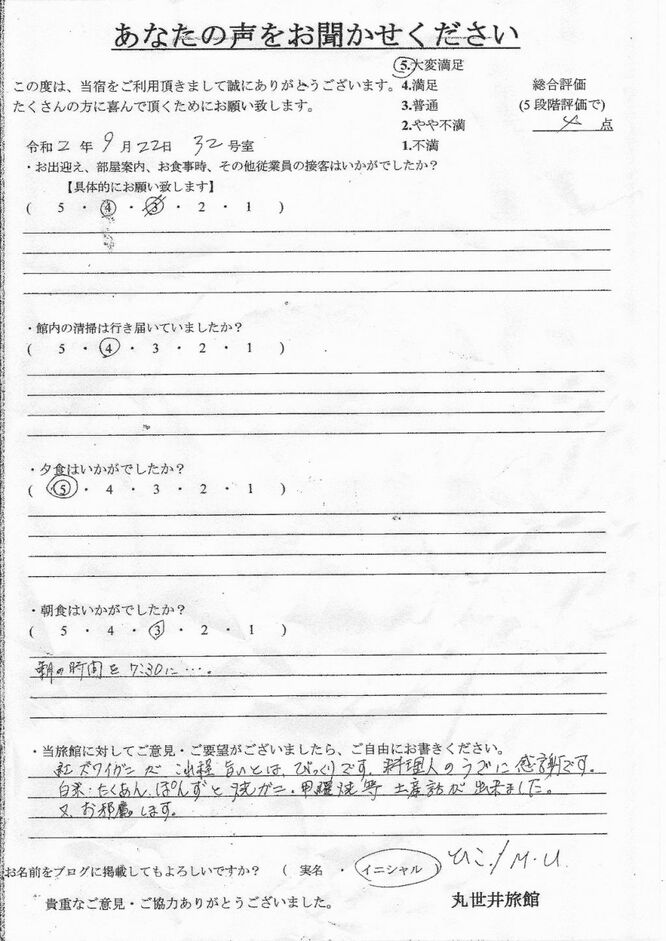 あなたの声をお聞かせください
この度は、当宿をご利用頂きまして誠にありがとうございます。
たくさんの方に喜んで頂くためにお願い致します。
5.大変満足
4.満足
3.普通
2.やや不満
1.不満
総合評価
(5段階評価で)
4 点
令和2年9月22日 32号室
・お出迎え、部屋案内、お食事時、その他従業員の接客はいかがでしたか?
【具体的にお願い致します】
( 5 ・ 4 ・ 3 ・ 2 ・ 1 )
・館内の清掃は行き届いていましたか?
( 5 ・ 4 ・ 3 ・ 2 ・ 1 )
・夕食はいかがでしたか?
( 5 ・ 4 ・ 3 ・ 2 ・ 1 )
・朝食はいかがでしたか?
( 5 ・ 4 ・ 3 ・ 2 ・ 1 )
朝の時間を7:30に…。
・当旅館に対してご意見・ご要望がございましたら、ご自由にお書きください。
紅ズワイガニが これ程 旨いとは、びっくりです。料理人のうでに感謝です。
白米・たくあん、ぽんずと焼ガニ・甲羅焼等 土産話が出来ました。
又、お邪魔します。
お名前をブログに掲載してもよろしいですか? ( 実名 ・ イニシャル ) M.U.
貴重なご意見・ご協力ありがとうございました。
丸世井旅館